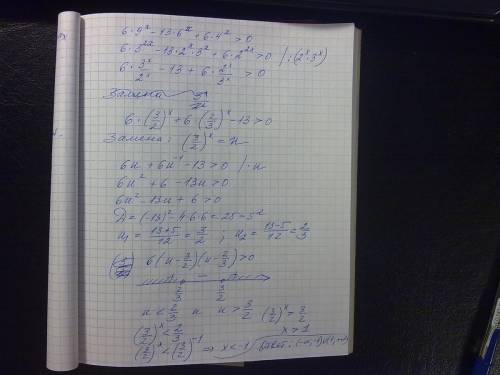 6·9ˣ - 13·6ˣ + 6·4ˣ > 0
6·3²ˣ - 13·2ˣ·3ˣ + 6·2²ˣ > 0 /:(2ˣ·3ˣ)
6·3ˣ/2ˣ - 13 + 6·2ˣ/3ˣ > 0
Замена
6·(3/2)ˣ + 6·(2/3)ˣ - 13 > 0
Замена: (3/2)ˣ = u
6u + 6u⁻¹ - 13 > 0 /·u
6u² + 6 - 13u > 0
6u² - 13u + 6 > 0
D = (-13)² - 4·6·6 = 25 = 5²
u₁ = 13+5/12 = 3/2 ; u₂ = 13-5/12 = 2/3
6(u - 3/2)(u - 2/3) > 0
+ - +
2/3 3/2
u < 2/3 и u > 3/2
(3/2)ˣ < 2/3 (3/2)ˣ > 3/2
x > 1
(3/2)ˣ < (3/2)⁻¹ ⇒ x < -1 Ответ: (-∞;-1)U(1;+∞)